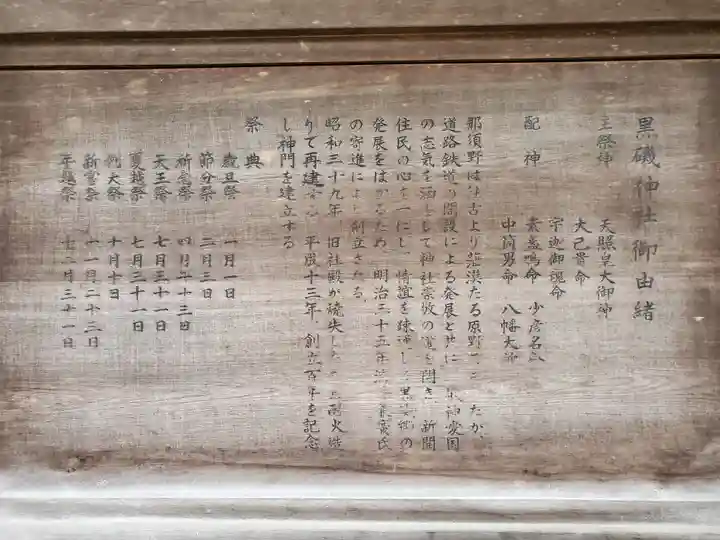 黒磯神社御由緒
主祭神 天照皇大御神
大己貴命
宇迦御魂命
配神 素盞鳴命 少彦名命
中筒男命 八幡大神
那須野は 古より 漠たる原野 たが、
道路鉄道の開設による発展と共に 神愛国
の志気を涵 して神社崇敬の道を開き 新開
住民の心を一にし 情誼を疎通し 黒磯 の
発展をはかるため 明治三十五年 氏
の寄進により創立さたる
昭和三十九年 旧社殿が焼失し 耐火 造
りて再建 平成十三年、創立百年を記念
し神門を建立する
祭典
歳旦祭 一月一日
節分祭 二月三日
祈念祭 四月二十三日
天王祭 七月三十一日
夏越祭 七月三十一日
例大祭 十月十日
新嘗祭 十一月二十三日
年越祭 十二月三十一日